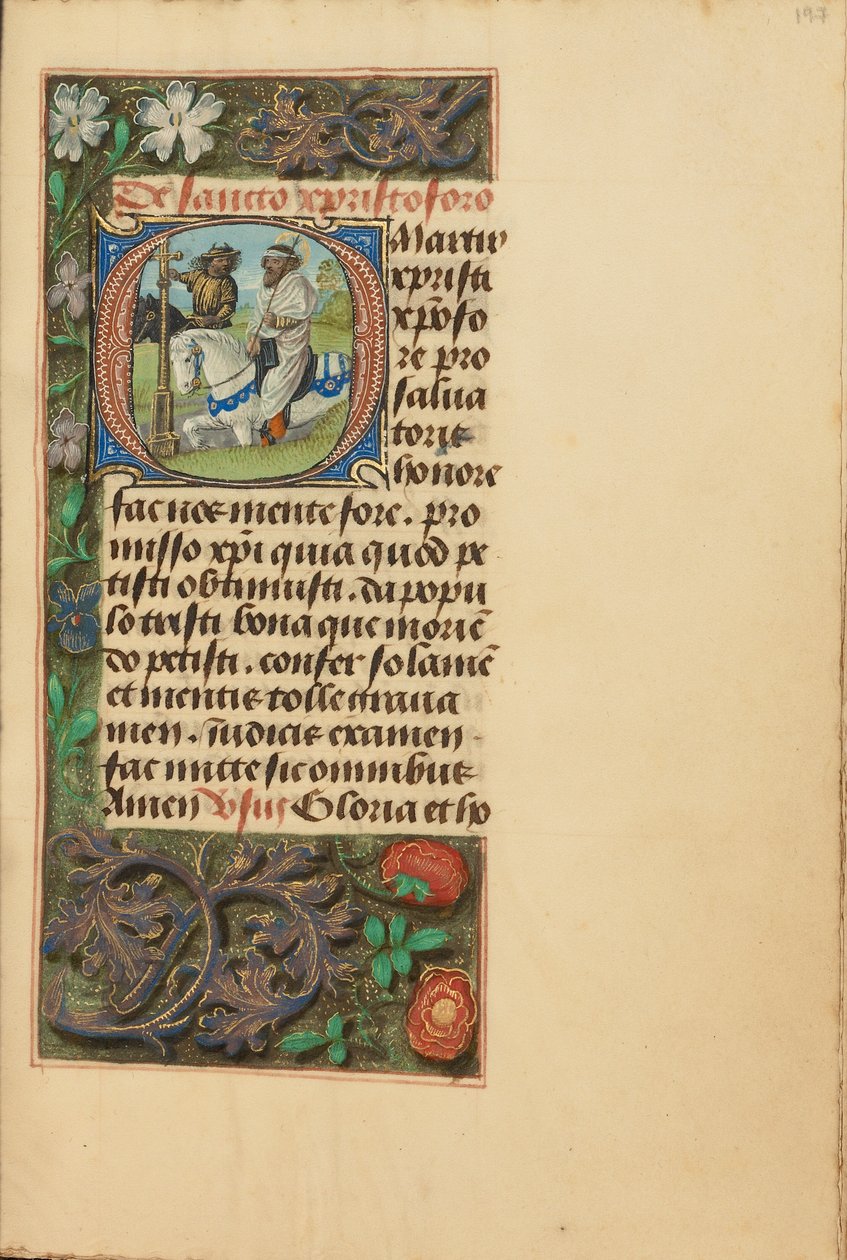 197
De sancto xpristoforo
Martir
xpristi
xpofo
re pro
salua
toris
honore
fac nos mente fore . pro
misso xpi quia quod pe
tisti obtinuisti . da popu
lo tristi bona que morie
do petisti . confer solame
et mentis tolle graua
men . iudicis examen .
fac mitte sic omnibus
Amen Vsus Gloria et ho